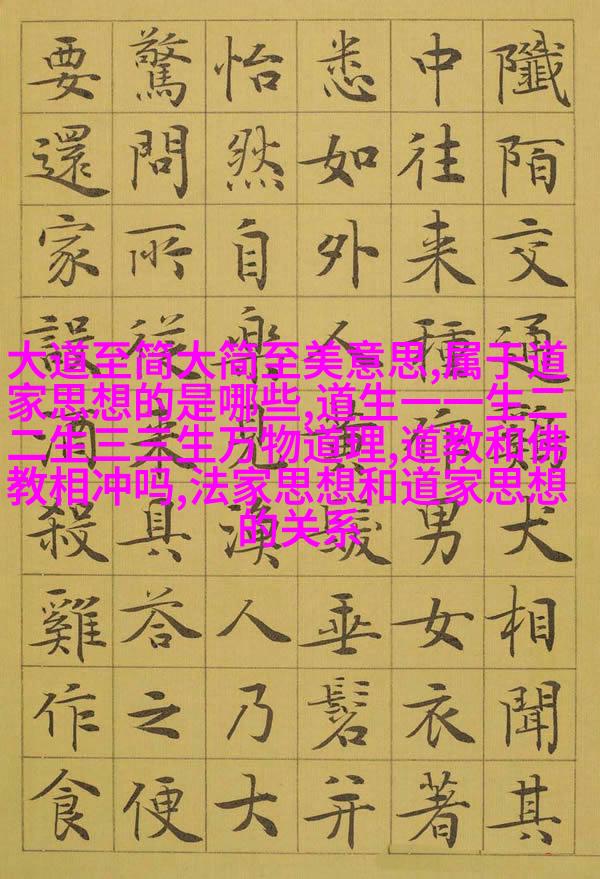 大道至简大简至美意思,属于道
家思想的是哪些,道生一一生二
二生三三生万物道理,道教和佛
教相冲吗,法家思想和道家思想
的关系
陌交通犬相聞其
中往来種男女衣著
悉如外人黄髮垂髫并
怡然自樂見漁人乃大
驚問所從具答之便
要還家設酒殺雞作食